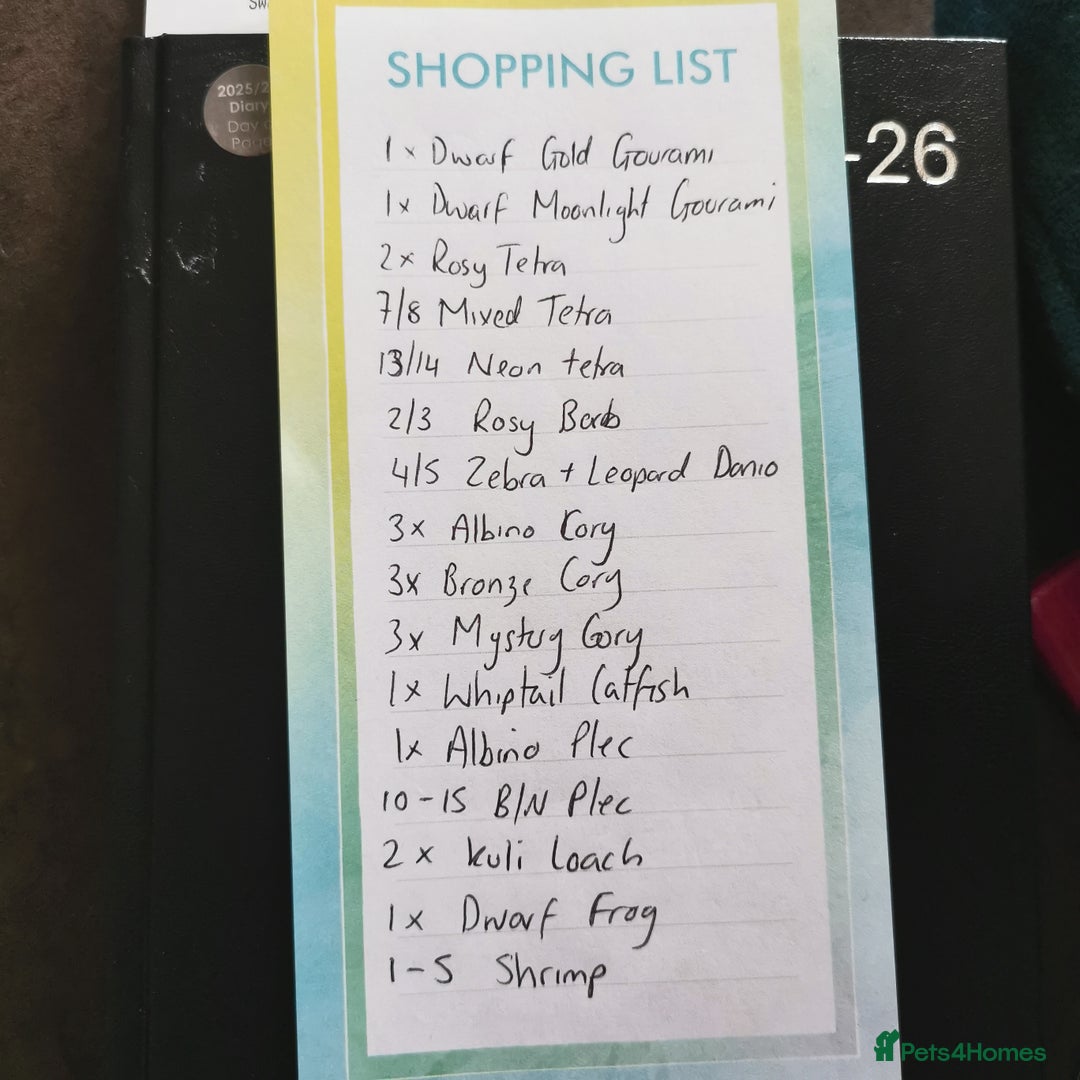 SHOPPING LIST
1 x Dwarf Gold Gourami
1x Dwarf Moonlight Gourami
2x Rosy Tetra
7/8 Mixed Tetra
13/14 Neon tetra
2/3 Rosy Barb
4/5 Zebra + Leopard Danio
3x Albino Cory
3x Bronze Cory
3x Mystery Cory
1x Whiptail Catfish
1x Albino Plec
10-15 B/N Plec
2 x Kuli Loach
1x Dwarf Frog
1-5 Shrimp
2025/2
Diary
Day
Page
-26
Pets4Homes